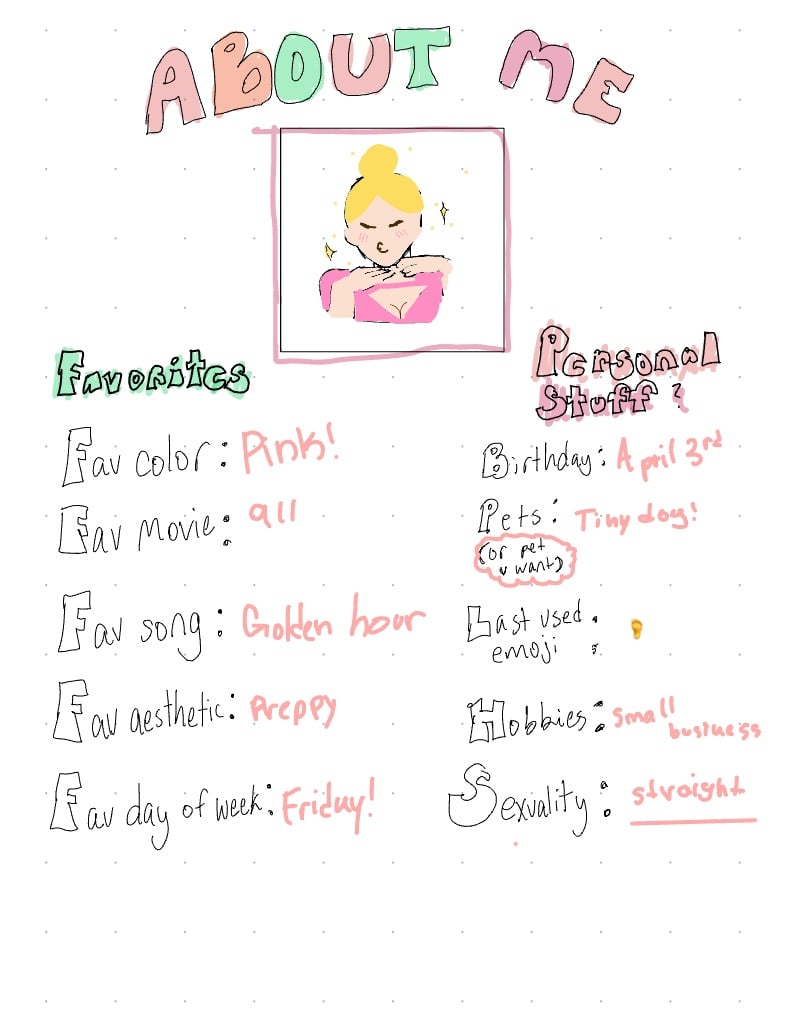 ABOUT ME
Favorites
Fav color: Pink!
Fav Movie: all
Fav song: Golden hour
Fav aesthetic: Preppy
Fav day of week: Friday!
Personal
Stuff :
Birthday: April 3rd
Pets: Tiny dog!
(or pet
u want)
Last used :
emoji
🦶
Hobbies: Small
business
Sexuality: straight